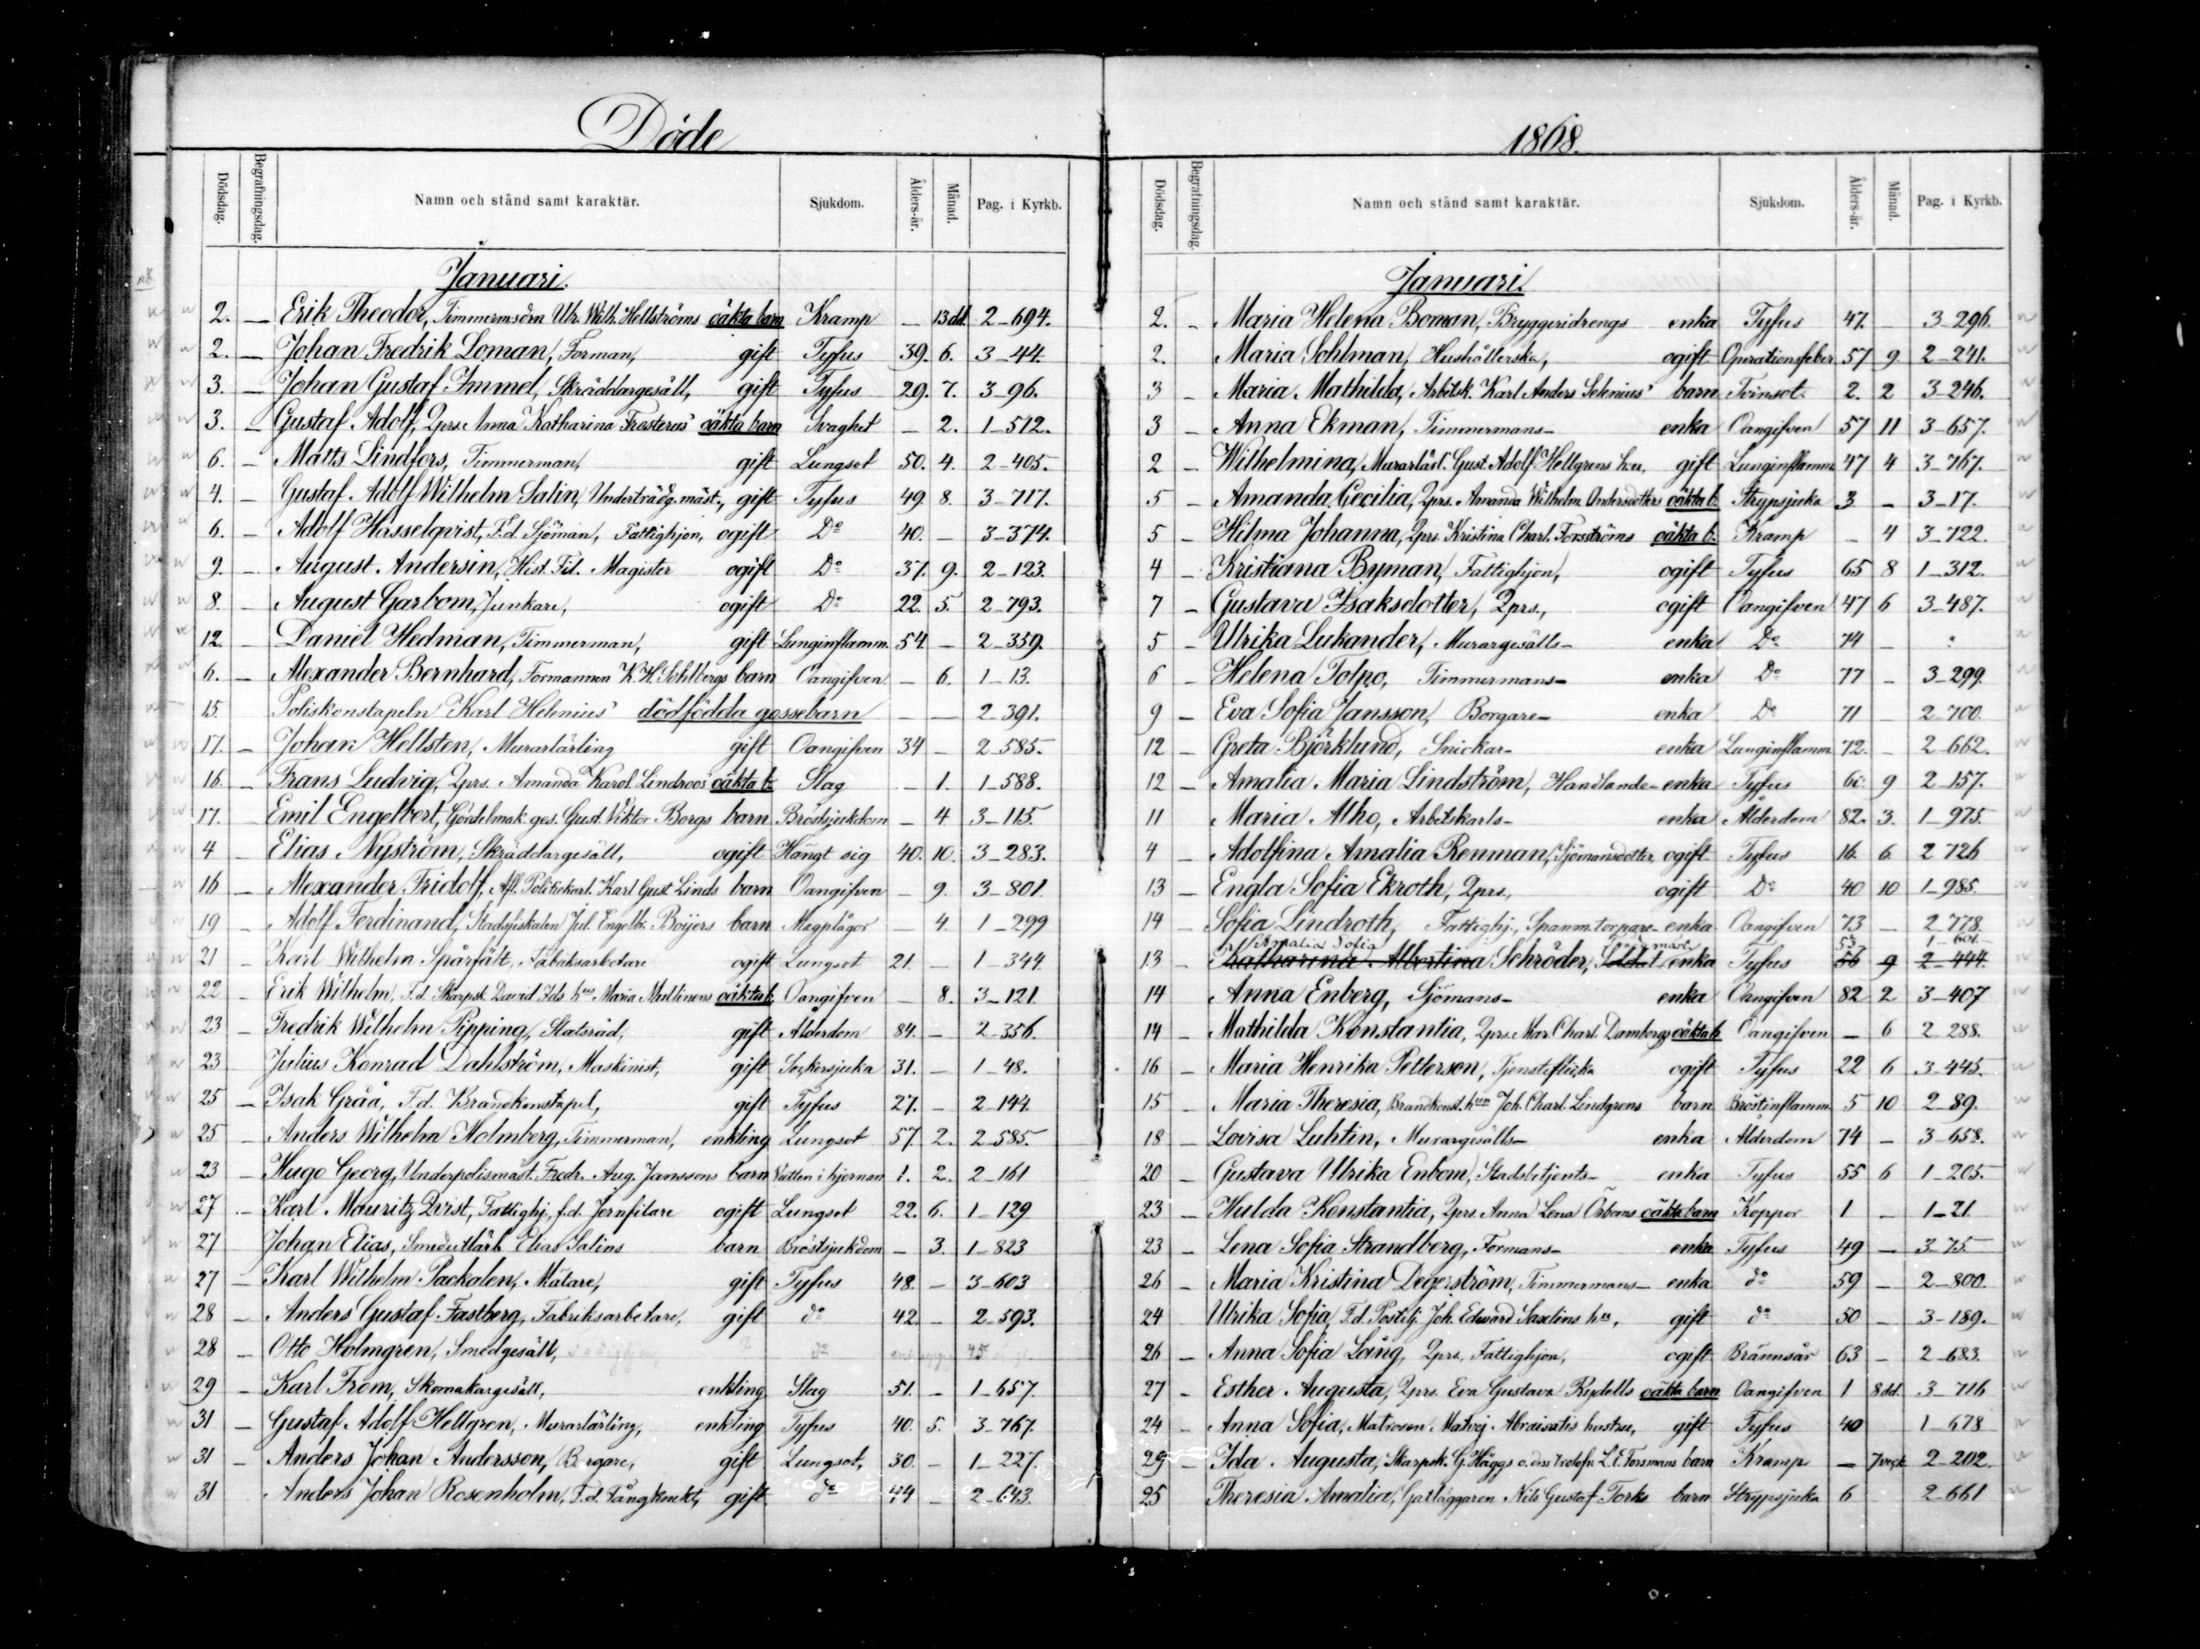 Döde
Dödsdag. Begrafningsdag. Namn och stånd samt karaktär. Sjukdom. Ålders-år. Månad. Pag. i Kyrkb.
Januari.
2. — Erik Theodor, Timmermsdrn Ulr. Wilh. Hellströms oäkta barn Kramp — 13 dd. 2_694.
2. — Johan Fredrik Loman, Forman, gift Tyfus 39. 6. 3_44.
3. — Johan Gustaf Immel, Skräddargesäll, gift Tyfus 29. 7. 3_96.
3. — Gustaf Adolf, Qprs. Anna Katharina Frosterus' oäkta barn Svaghet — 2. 1_512.
6. — Matts Lindfors, Timmerman, gift Lungsot 50. 4. 2_405.
4. — Gustaf Adolf Wilhelm Salin, Underträdg. mäst., gift Tyfus 49. 8. 3_717.
6. — Adolf Hasselqvist, F.d. Sjöman, Fattighjon, ogift Do 40. — 3_374.
9. — August Andersin, Hist. Fil. Magister ogift Do 37. 9. 2_123.
8. — August Garbom, Junkare, ogift Do 22. 5. 2_793.
12. — Daniel Hedman, Timmerman, gift Lunginflamm. 54. — 2_359.
6. — Alexander Bernhard, Formannen K. H. Sohlbergs barn Oangifven — 6. 1_13.
15. Poliskonstapeln Karl Helenius' dödfödda gossebarn — — 2_391.
17. — Johan Hellsten, Murarlärling gift Oangifven 34 — 2_585.
16. — Frans Ludvig, Qprs. Amanda Karol. Lindroos' oäkta b. Slag — 1. 1_588.
17. — Emil Engelbert, Gördelmak. ges. Gust. Viktor Borgs barn Bröstsjukdom — 4. 3_115.
4 — Elias Nyström, Skräddargesäll, ogift Hängt sig 40. 10. 3_283.
16 — Alexander Fridolf, Afl. Politiekarl. Karl Gust Linds barn Oangifven — 9. 3_801
19 . Adolf Ferdinand, Stadsfiskalen Jul. Engelbr. Boijers barn Magplågor — 4. 1_299
21 — Karl Wilhelm Spårfält, Fabriksarbetare ogift Lungsot 21. — 1_344
22 — Erik Wilhelm, F.d. Skarpsk. David Ids hus Maria Mellinens oäkta b. Oangifven — 8. 3_121.
23 — Fredrik Wilhelm Pipping, Statsråd, gift Ålderdom 84. — 2_356.
23 — Julius Konrad Dahlström, Maskinist, gift Sockersjuka 31. — 1_48.
25 — Isak Gråå, F.d. Brandkonstapel, gift Tyfus 27. — 2_144.
25 — Anders Wilhelm Holmberg, Timmerman, enkling Lungsot 57. 2. 2_585.
23 — Hugo Georg, Underpolismäst. Fredr. Aug. Janssons barn Vatten i hjernan 1. 2. 2_161
27 — Karl Mauritz Qvist, Fattighj., f.d. Jernfilare ogift Lungsot 22. 6. 1_129
27 Johan Elias, Smedutlärl. Elias Salins barn Bröstsjukdom — 3. 1_823
27 — Karl Wilhelm Packalen, Mätare, gift Tyfus 48. — 3_603
28 — Anders Gustaf Fastberg, Fabriksarbetare, gift do 42 — 2_593.
28 — Otto Holmgren, Smedgesäll, do 45
29 — Karl From, Skomakargesäll, enkling Slag 51. — 1_657.
31 — Gustaf Adolf Hellgren, Murarlärling, enkling Tyfus 40. 5. 3_767.
31 — Anders Johan Andersson, Borgare, gift Lungsot, 30. — 1_227.
31 Anders Johan Rosenholm, F.d. Fångknekt, gift do 44 — 2_643.
1868.
Dödsdag. Begrafningsdag. Namn och stånd samt karaktär. Sjukdom. Ålders-år. Månad. Pag. i Kyrkb.
Januari.
2. — Maria Helena Boman, Bryggeridrengs enka Tyfus 47. — 3_296.
2. — Maria Sohlman, Hushållerska, ogift Operationsfeber 57 9. 2_241.
3 — Maria Mathilda, Arbetsk. Karl Anders Selenius' barn Tvinsot. 2. 2 3_246.
3 — Anna Ekman, Timmermans_ enka Oangifven 57 11 3_657.
2 — Wilhelmina, Murarlärl. Gust. Adolf Hellgrens h.u., gift Lunginflamm. 47 4 3_767.
5 — Amanda Cecilia, Qprs. Amanda Wilhelm. Andersdotters oäkta b. Strypsjuka 3 — 3_17.
5 — Hilma Johanna, Qprs. Kristina Charl. Forsströms oäkta b. Kramp — 4 3_722.
4 — Kristiana Byman, Fattighjon, ogift Tyfus 65 8 1_312.
7 — Gustava Isaksdotter, Qprs., ogift Oangifven 47 6 3_487.
5 — Ulrika Lukander, Murargesälls_ enka Do 74 — :
6 — Helena Tolpo, Timmermans_ enka Do 77 — 3_299.
9 — Eva Sofia Jansson, Borgare_ enka Do 71 — 2_700.
12 — Greta Björklund, Snickar_ enka Lunginflamm. 72. — 2_662.
12 — Amalia Maria Lindström, Handlande_ enka Tyfus 60. 9 2_157.
11 — Maria Alho, Arbetskarls_ enka Ålderdom 82. 3. 1_975
4 — Adolfina Amalia Renman, Sjömansdotter, ogift Tyfus 16. 6. 2 726
13 — Engla Sofia Ekroth, Qprs., ogift Do 40 10 1_985.
14 — Sofia Lindroth, Fattighj., Spanm. torpare_ enka Oangifven 73 — 2_778.
Amalia Sofia 53 1_601
13 — Katharina Albertina Schröder, Soldat enka Tyfus 56 9 2_444.
14 — Anna Enberg, Sjömans_ enka Oangifven 82 2 3_407
14 — Mathilda Konstantia, Qprs. Mar. Charl. Dambergs oäkta b. Oangifven — 6 2 288.
16 — Maria Henrika Petterson, Tjensteflicka ogift Tyfus 22 6 3_445.
15 — Maria Theresia, Brandkonst. Joh. Charl. Lindgrens barn Bröstinflamm. 5 10 2_89.
18 — Lovisa Luhtin, Murargesälls_ enka Ålderdom 74 — 3_658.
20 — Gustava Ulrika Enbom, Stadsbetjents_ enka Tyfus 55 6 1_205.
23 — Hulda Konstantia, Qprs. Anna Lena Örboms oäkta barn Koppor 1 — 1_21.
23 — Lena Sofia Strandberg, Formans_ enka Tyfus 49 — 3_75
26 — Maria Kristina Degerström, Timmermans_ enka do 59 — 2_800.
24 Ulrika Sofia, F.d. Postilj. Joh. Edvard Saxelins hu, gift do 50 — 3_189.
26 — Anna Sofia Lång, Qprs. Fattighjon, ogift Brännsår 63 — 2_683.
27 — Esther Augusta, Qprs. Eva Gustava Rydells oäkta barn Oangifven 1 8 dd. 3_716
24 — Anna Sofia, Matrosen Matvej hustru, gift Tyfus 40 1_678
29 — Ida Augusta, Skarpsk. G. Häggs o. dess trolofv. L. E. Forsmans barn Kramp — 2_202.
25 Theresia Amalia, Gatläggaren Nils Gustaf Torks barn Strypsjuka 6 2_661